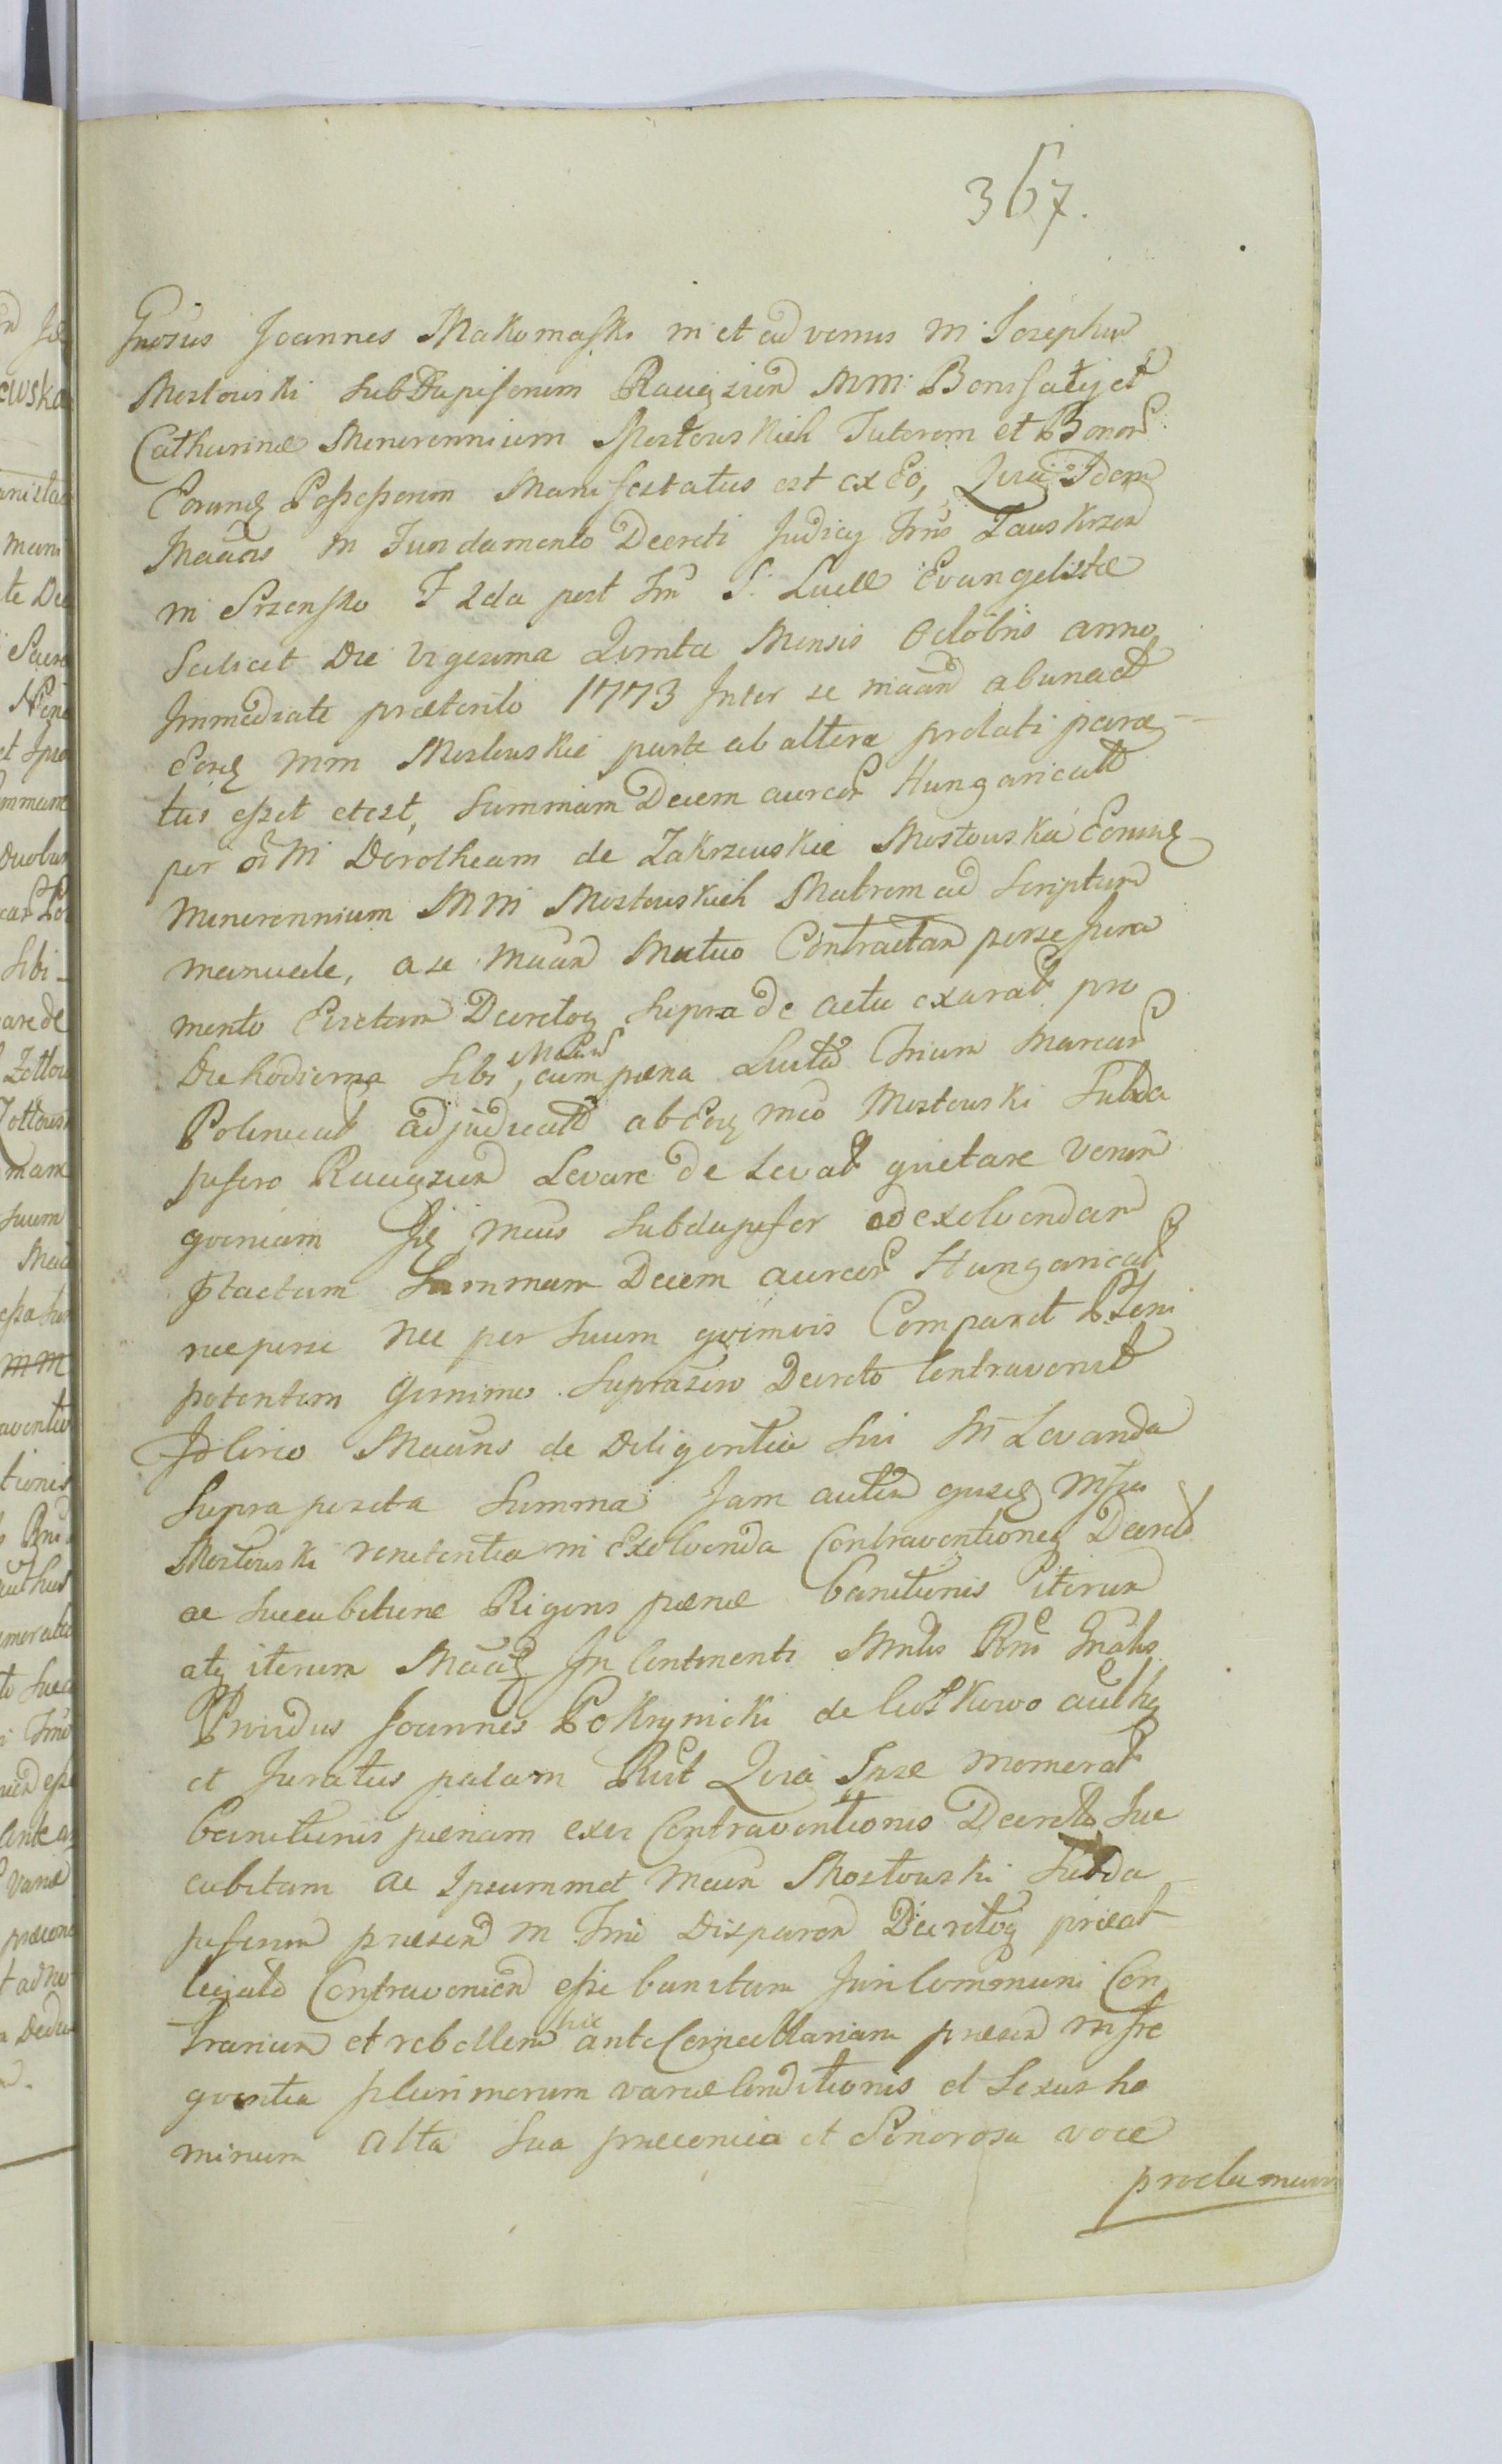 367.
Gnosus Joannes Makomaski in et adversus M. Josephum
Mostowski SubDapiferum Raciązien MM: Bonifatij et
Catharinæ Minorennium Mostowskich Tutorem et Bonor
Eorundq Possessorem Manifestatus est ex Eo, Quia Idem
Maans in Fundamento Decreti Judicij Trris Zawskrzen
in Srzensko F 2da post Fm S. Lucæ Evangelistæ
Scilicet Die Vigesima Quinta Mensis Octobris anno
Immediate præterito 1773 Inter se maan ab una et
Eosq MM Mostowskie parte ab altera prolati para
tus esset et est, Summam Decem aureor Hungaricall
per M Dorotheam de Zakrzewskie Mostowska Eorundq
Minorennium MM Mostowskich Matrem ad Scriptum
manuale, a se Maan Mutuo Contractam per se Jura
mento Evictam Decretoq supra de actu exarat pro
Die hodierna Sibi Maan, cum pæna Luita Trium Marcar
Polonical adjudicatt ab Eoq Mco Mostowski Subda
pifero Raciązien Levare de Levat quietare Verum
quoniam Isq Mcus Subdapifer ad exolvendam
ptactam Summam Decem aureor Hungarical
nec per se nec per Suum quimvis Comparet Pleni
potentem Quinimo Suprascro Decreto Contravenit
Ideirco Maans de Diligentia Sui In Levanda
Supraposita Summa Jam autem ejusdq Msci
Mostowski renitentia in Exolvenda Contraventioneq Decreto
ac Succubitione Rigoris pænæ banitionis iterum
atq iterum Maaq In Continenti Mnlis Rni Gnalis
Providus Joannes Pokrynicki de Lutkowo authq
et Juratus palam Rcut Quia Ipse momorat
banitionis pænam ex Contraventionis Decreto Suc
cubitam ac Ipsummet Mcum Mostowski Subda
piferum præsen in Trrio Disparen Decretoq præat
legato Contravenien esse banitum Juri Communi Con
trarium et rebellem hic ante Cancellariam præsen in fre
quentia plurimorum variæ Conditionis et Sexus ho
minum Alta Sua præconica et Sonorosa voce
proclamavit